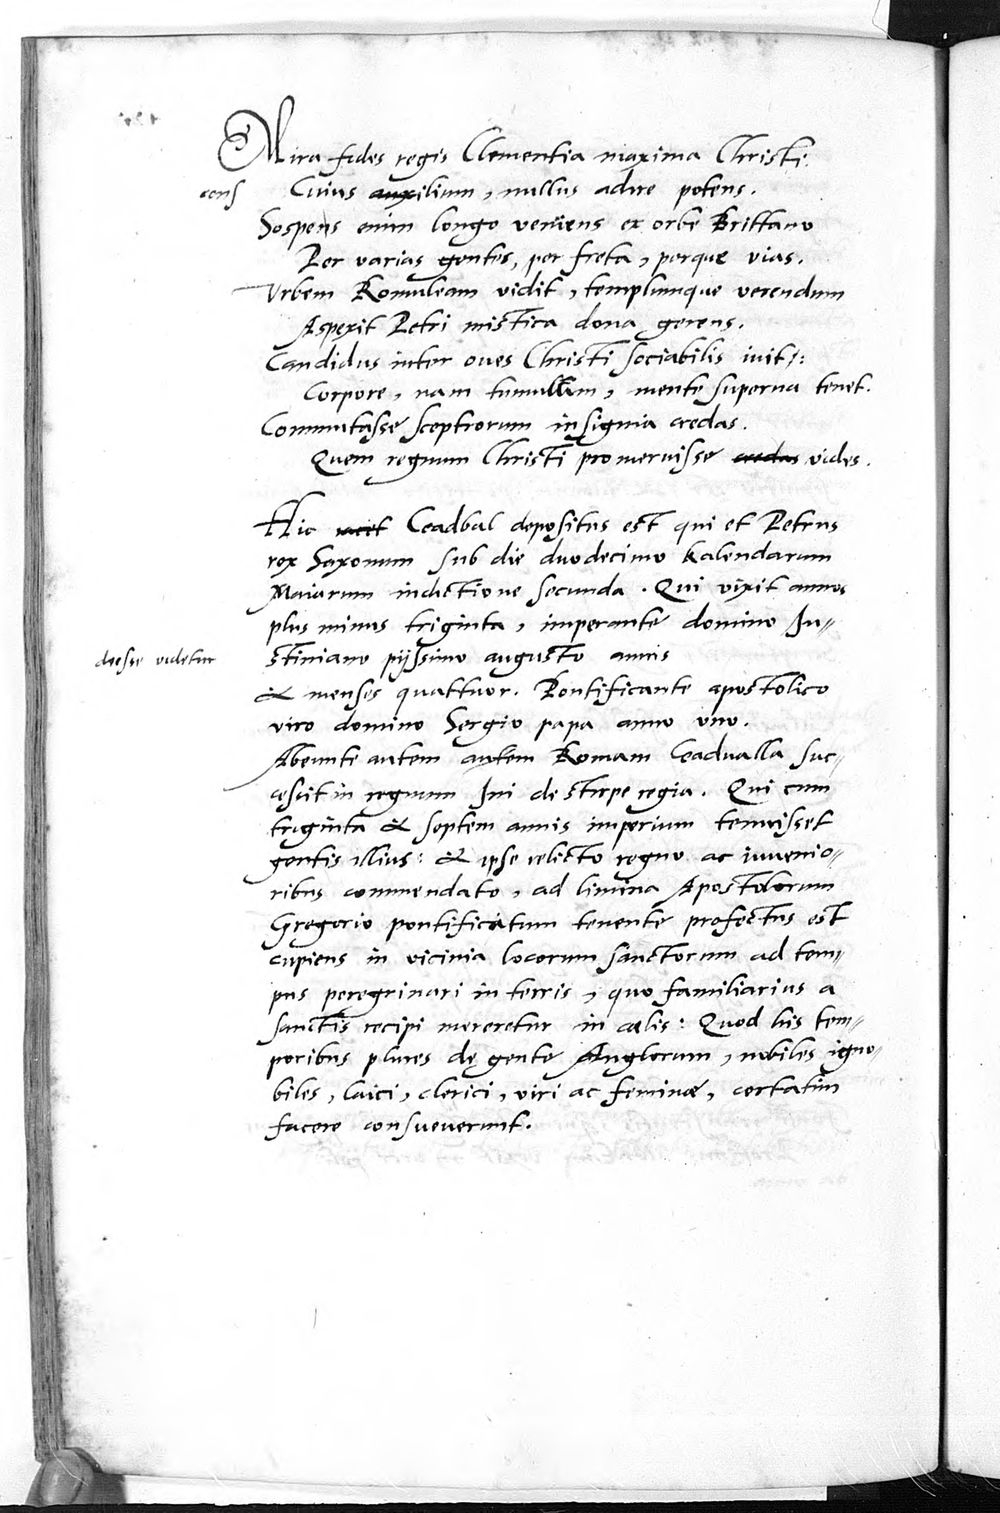 Mira fides regis Clementia maxima Christi.
cons Cuius auxilium, nullus adire potens.
Sospens enim longo veniens ex orbe Brittano
Per varias gentes, per freta, perque vias.
Urbem Romuleam vidit, templumque verendum
Aspexit Petri mistica dona gerens.
Candidus inter oues Christi sociabilis iuit:
Corpore, nam tumulum, mente superna tenet.
Commutasse sceptrorum insignia credas.
Quem regnum Christi promeruisse credas vides.
Hic iacet Ceadbal depositus est qui et Petrus
rex Saxonum sub die duodecimo kalendarum
Maiarum indictione secunda. Qui vixit annos
plus minus triginta, imperante domino Iu=
deesse videtur stiniano pijssimo augusto annis
& menses quattuor. Pontificante apostolico
viro domino Sergio papa anno uno.
Abeunte autem autem Romam Ceadualla suc=
cessit in regnum Ini de stirpe regia. Qui cum
triginta & septem annis imperium tenuisset
gentis illius: & ipse relicto regno ac iuvenio=
ribus commendato, ad limina Apostolorum
Gregorio pontificatum tenente profectus est
cupiens in vicinia locorum sanctorum ad tem=
pus peregrinari in terris, quo familiarius a
sanctis recipi mereretur in cælis: Quod his tem=
poribus plures de gente Anglorum, nobiles igno=
biles, laici, clerici, viri ac feminæ, certatim
facere consueverunt.